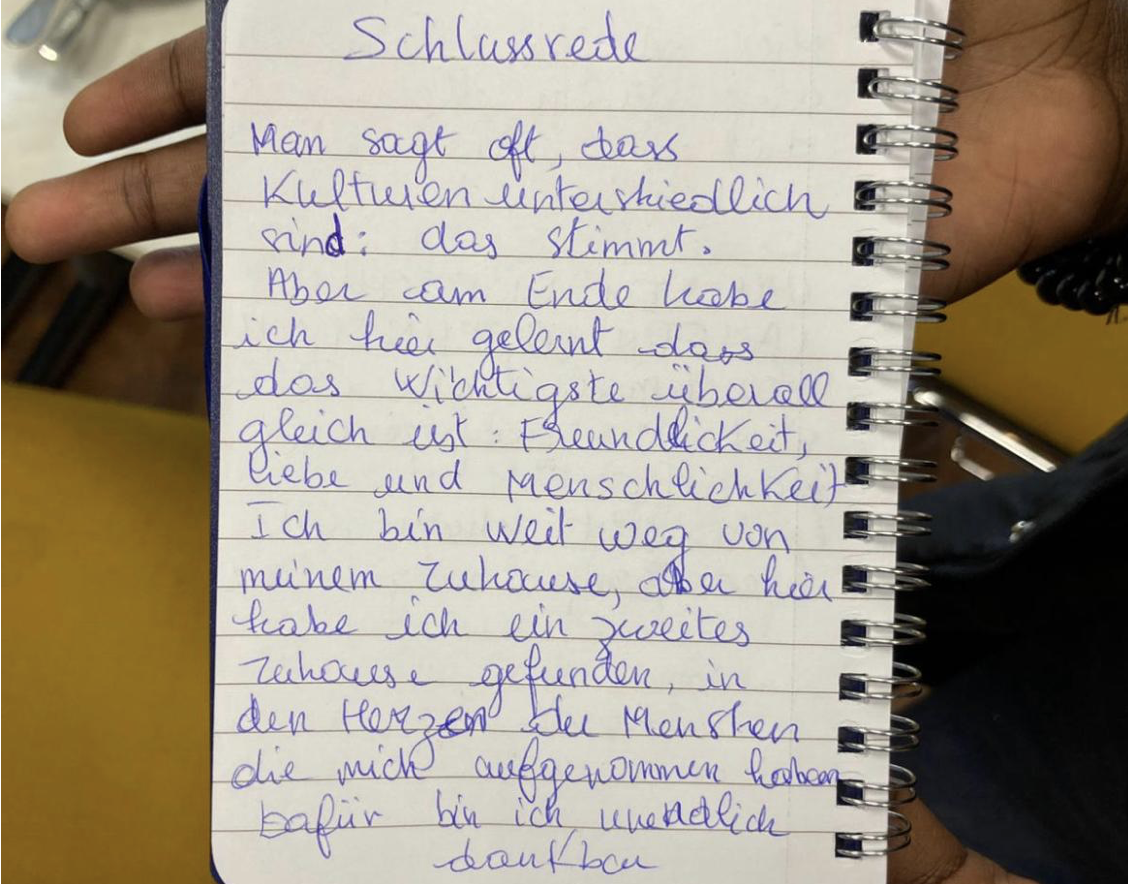 Schlussrede
Man sagt oft, dass
Kulturen unterskiedlich
sind: das stimmt.
Aber am Ende habe
ich hier gelernt dass
das Wichtigste überall
gleich ist: Freundlickeit,
liebe und Menschlichkeit
Ich bin weit weg von
meinem Zuhause, aber hier
habe ich ein zweites
Zuhause gefunden, in
den Herzen der Menshen
die mich aufgenommen haben
Dafür bin ich unendlich
dankbar